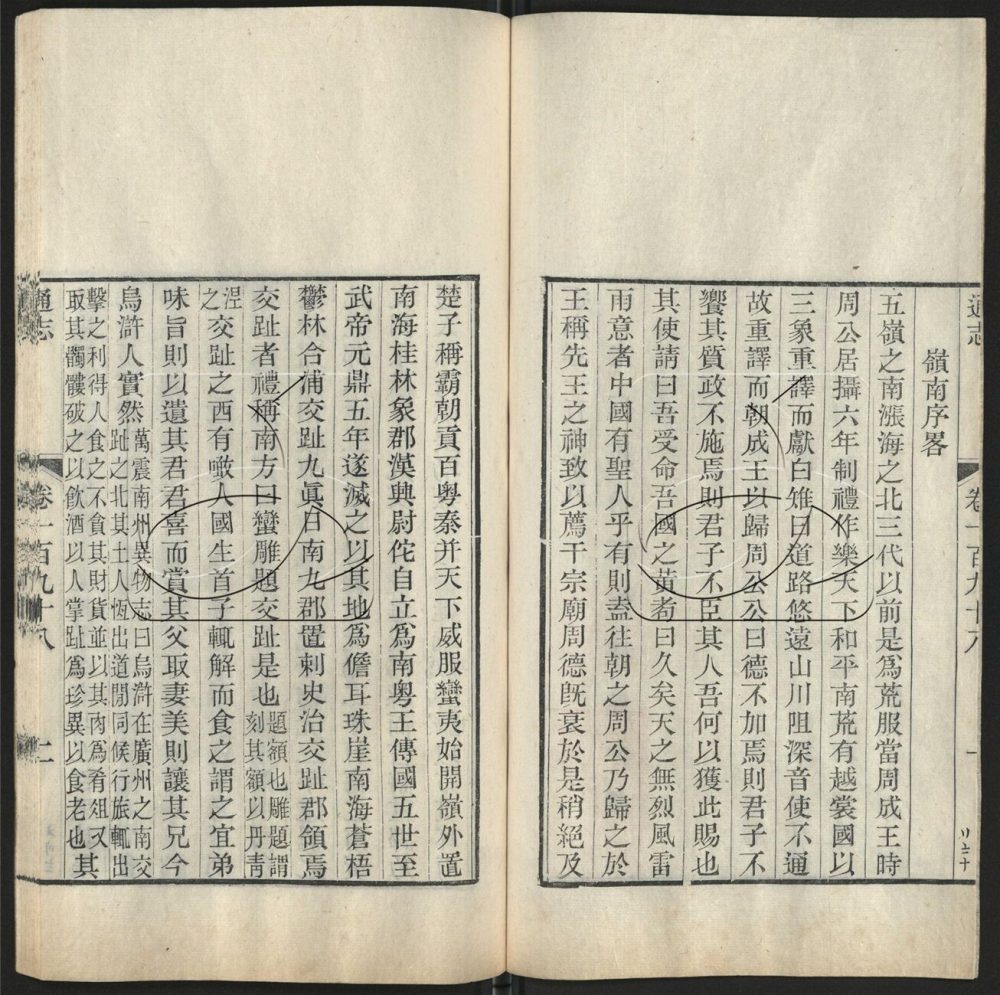 通志
卷一百九十八
一
嶺南序畧
五嶺之南漲海之北三代以前是爲荒服當周成王時
周公居攝六年制禮作樂天下和平南荒有越裳國以
三象重譯而獻白雉曰道路悠遠山川阻深音使不通
故重譯而朝成王以歸周公公曰德不加焉則君子不
饗其質政不施焉則君子不臣其人吾何以獲此賜也
其使請曰吾受命吾國之黃耇曰久矣天之無烈風雷
雨意者中國有聖人乎有則盍往朝之周公乃歸之於
王稱先王之神致以薦于宗廟周德旣衰於是稍絕及
楚子稱霸朝貢百粵秦并天下威服蠻夷始開嶺外置
南海桂林象郡漢興尉佗自立爲南粵王傳國五世至
武帝元鼎五年遂滅之以其地爲儋耳珠崖南海蒼梧
鬱林合浦交趾九眞日南九郡置刺史治交趾郡領焉
交趾者禮稱南方曰蠻雕題交趾是也題額也雕題謂刻其額以丹靑
涅之交趾之西有噉人國生首子輒解而食之謂之宜弟
味旨則以遺其君君喜而賞其父取妻美則讓其兄今
烏滸人實然萬震南州異物志曰烏滸在廣州之南交趾之北其土人恆出道閒同候行旅輒出
擊之利得人食之不貪其財貨並以其肉爲肴俎又取其髑髏破之以飮酒以人掌趾爲珍異以食老也其
通志
卷一百九十八
二